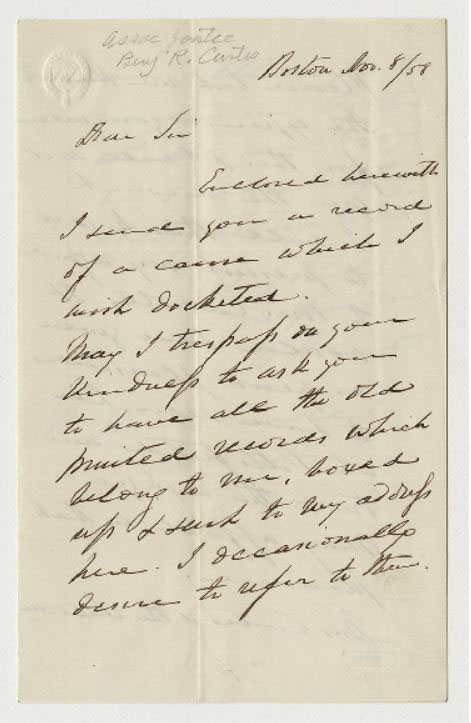 Assoc Justice
Benj R. Curtis
Boston Nov. 8/58
Dear Sir
Enclosed herewith
I send you a record
of a cause which I
wish docketed.
May I trespass on your
kindness to ask you
to have all the old
printed records which
belong to me, boxed
up & sent to my address
here. I occasionally
desire to refer to them.